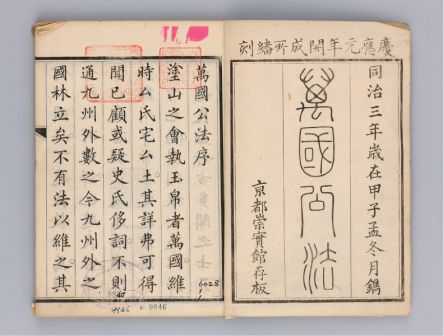 慶應元年開成所繙刻
同治三年歲在甲子孟冬月鐫
萬國公法
京都崇實館存板
萬國公法序
塗山之會執玉帛者萬國維
時厶氏宅厶土其詳弗可得
聞已顧或疑史氏侈詞不則
通九州外數之今九州外之
國林立矣不有法以維之其
6028